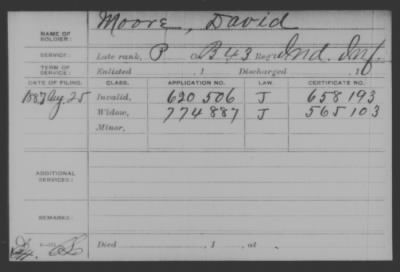 NAME OF SOLDIER: Moore, David
SERVICE: Late rank, P Co. B 43 Reg't Ind. Inf.
TERM OF SERVICE: Enlisted , 1 Discharged , 1
DATE OF FILING. CLASS. APPLICATION NO. LAW. CERTIFICATE NO.
1887 Aug. 25 Invalid, 620 506 J 658 193
Widow, 774 887 J 565 103
Minor,
ADDITIONAL SERVICES:
REMARKS:
Died , 1 , at